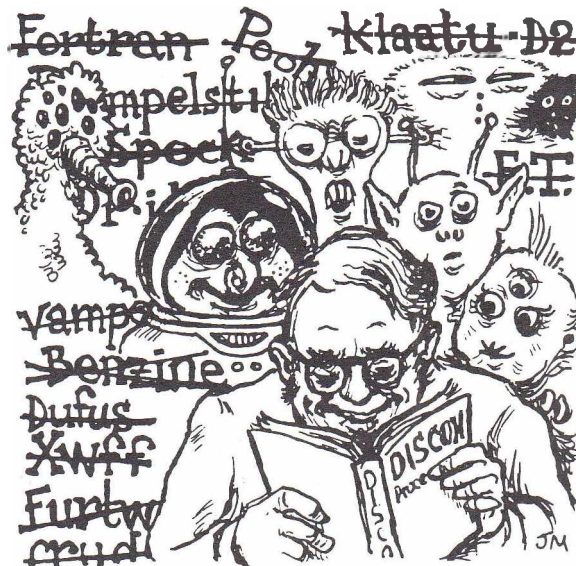 Fortran Pooh Klaatu D2
mpelsti
Spock
E.T.
vampo
Benzine
Dufus
Xwff
Furtw
crud
DISCON
DISCO
JM